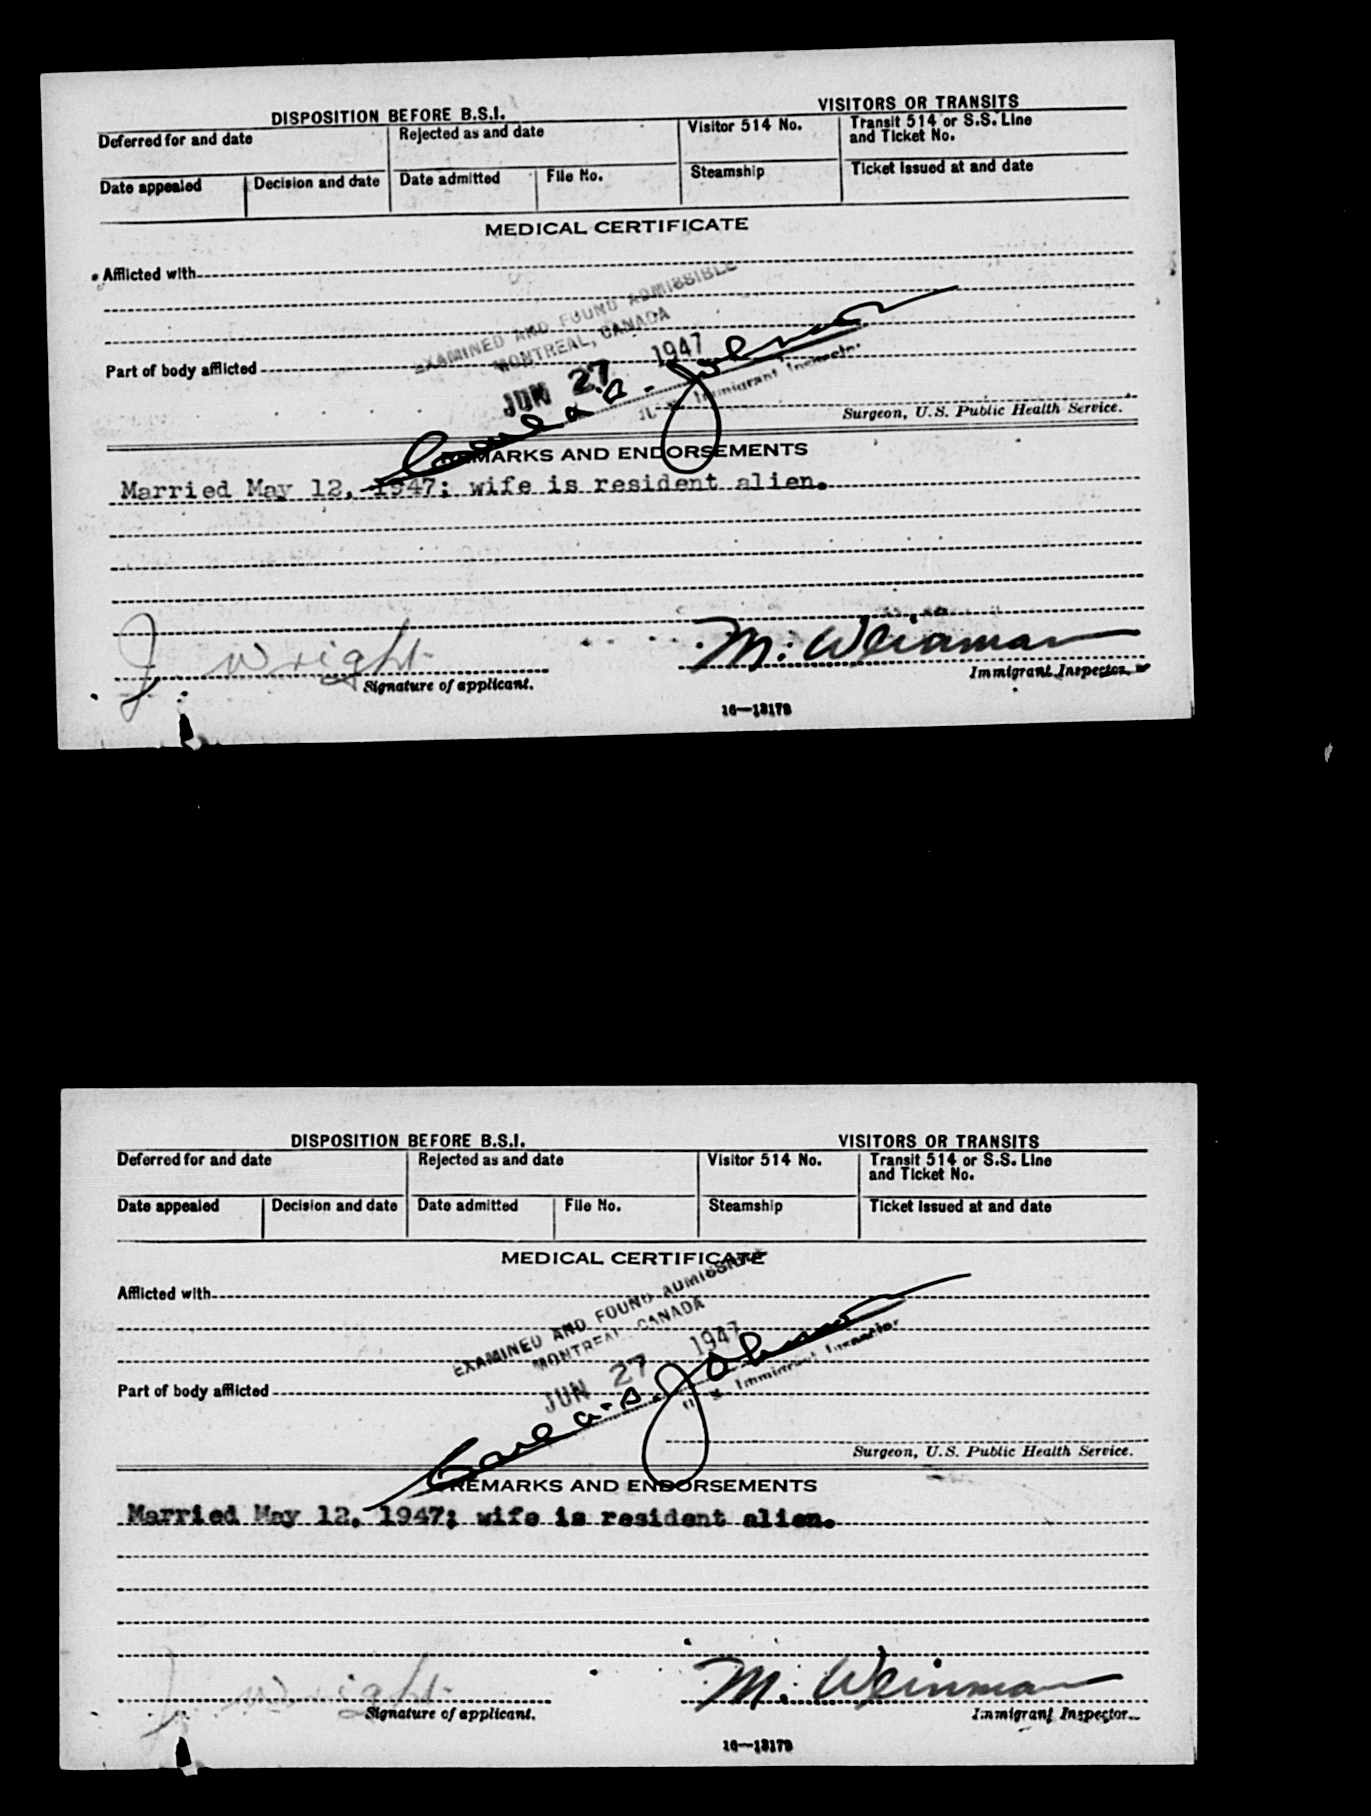 DISPOSITION BEFORE B.S.I. VISITORS OR TRANSITS
Deferred for and date Rejected as and date Visitor 514 No. Transit 514 or S.S. Line and Ticket No.
Date appealed Decision and date Date admitted File No. Steamship Ticket issued at and date
MEDICAL CERTIFICATE
Afflicted with
EXAMINED AND FOUND ADMISSIBLE
MONTREAL, CANADA
Part of body afflicted
JUN 27 1947
Carl A. S. Johnson
U. S. Immigrant Inspector
Surgeon, U.S. Public Health Service.
REMARKS AND ENDORSEMENTS
Married May 12, 1947; wife is resident alien.
J. Wright M. Weinman
Signature of applicant. Immigrant Inspector.
16—13179
DISPOSITION BEFORE B.S.I. VISITORS OR TRANSITS
Deferred for and date Rejected as and date Visitor 514 No. Transit 514 or S.S. Line and Ticket No.
Date appealed Decision and date Date admitted File No. Steamship Ticket issued at and date
MEDICAL CERTIFICATE
Afflicted with
EXAMINED AND FOUND ADMISSIBLE
MONTREAL, CANADA
Part of body afflicted
JUN 27 1947
Carl A. S. Johnson
U. S. Immigrant Inspector
Surgeon, U.S. Public Health Service.
REMARKS AND ENDORSEMENTS
Married May 12, 1947; wife is resident alien.
J. Wright M. Weinman
Signature of applicant. Immigrant Inspector.
16—13179